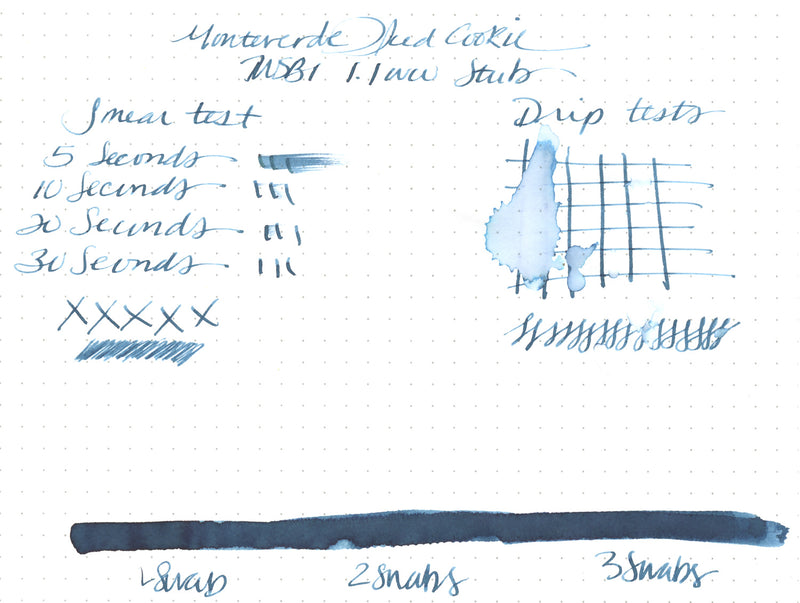 Monteverde Iced Cookie
MSB1 1.1mm Stub
Smear test
5 Seconds
10 Seconds
20 Seconds
30 Seconds
Drip tests
1 Swab
2 Swabs
3 Swabs